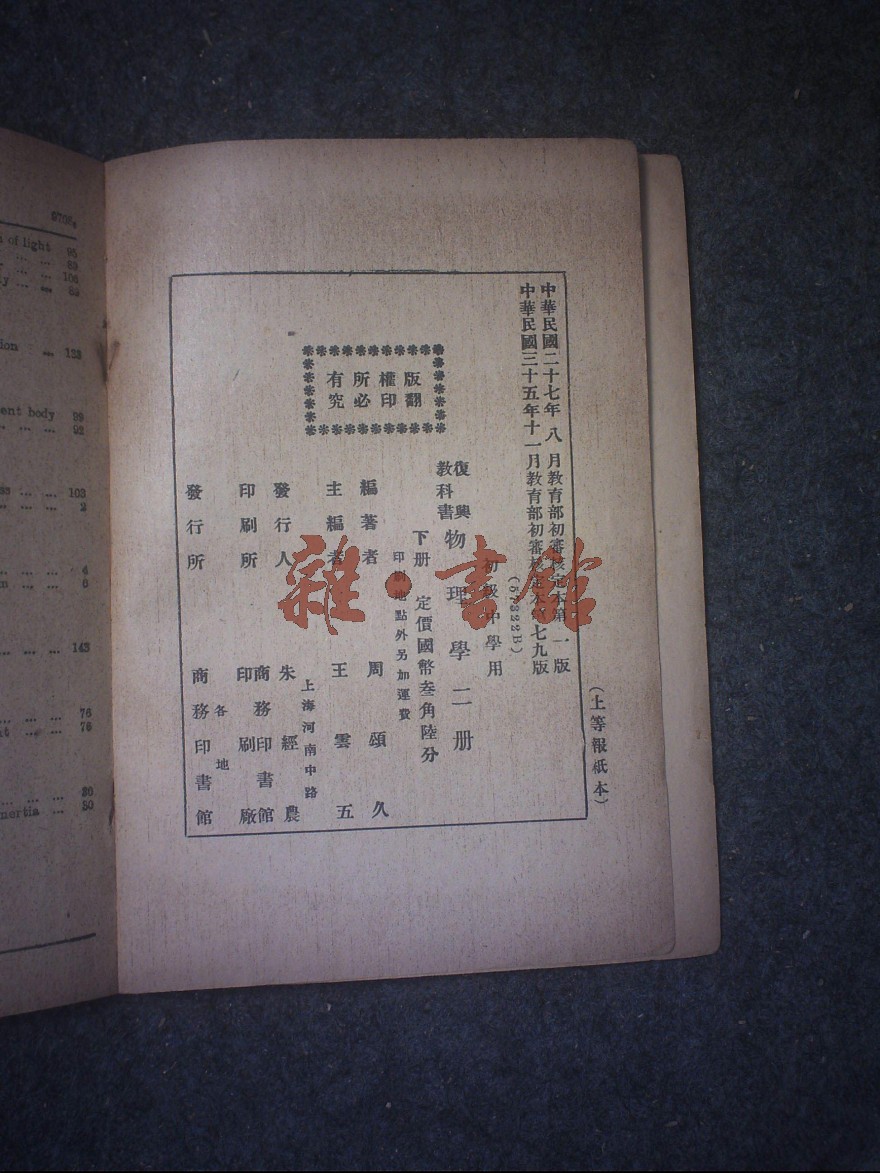 中華民國二十七年八月教育部初審核定本第一版
中華民國三十五年十一月教育部初審核定本第七九版
(57322B)
(上等報紙本)
初級中學用
復興
教科書
物理學二冊
下冊 定價國幣叁角陸分
印刷地點外另加運費
版權所有
翻印必究
編著者 周頌久
主編者 王雲五
上海河南中路
發行人 朱經農
印刷所 商務印書館
印刷廠
各地
發行所 商務印書館
雜·書館
970g
of light 95
89
106
y ... 89
ion ... 133
ent body 99
92
ss ... 103
2
4
n ... 6
143
76
76
30
nertia ... 30